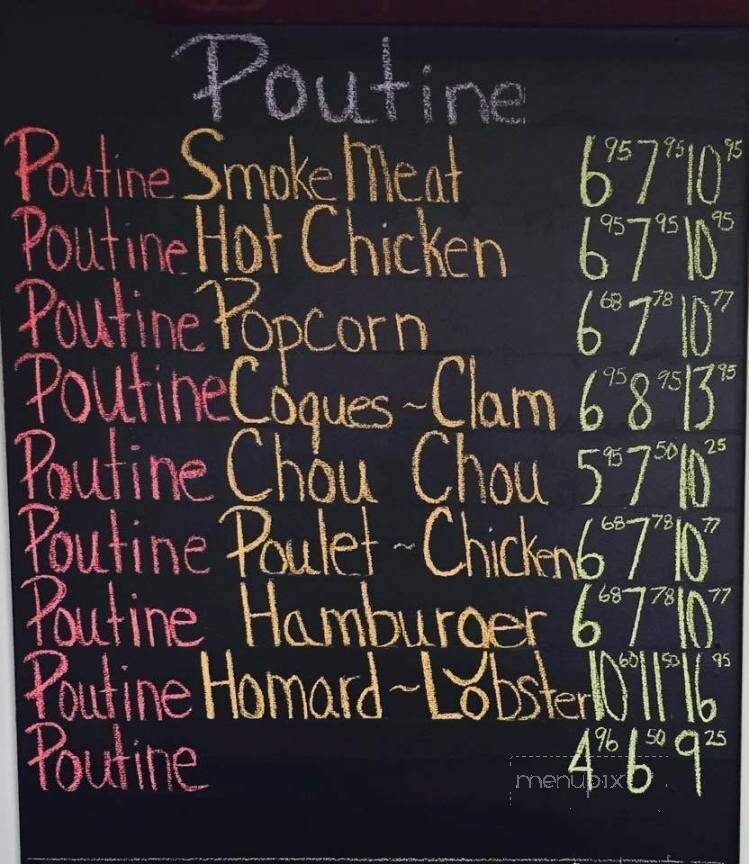 Poutine
Poutine Smoke Meat 6 95 7 95 10 95
Poutine Hot Chicken 6 95 7 95 10 95
Poutine Popcorn 6 68 7 78 10 77
Poutine Coques ~ Clam 6 95 8 95 13 95
Poutine Chou Chou 5 95 7 50 10 25
Poutine Poulet ~ Chicken 6 68 7 78 10 77
Poutine Hamburger 6 68 7 78 10 77
Poutine Homard ~ Lobster 10 60 11 53 16 95
Poutine 4 96 6 50 9 25
menupix